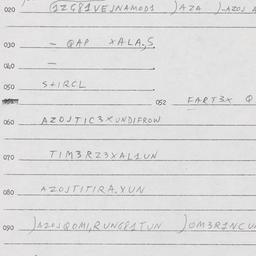 020 1ZG81VEJNAMOD1 )AZA )-AZOJ A
030 - QAP XALA,S
040 -
050 S+IRCL
052 FART3X Q
060 AZOJTIC3XUNDIFROW
070 TIM3RZ3XAL1UN
080 AZOJTITIRA.YUN
090 )AZOJQOMI,RUNG81TUN )OM3R1NCU